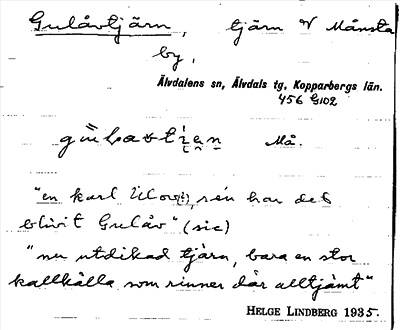 Gulåvtjärn, tjärn V Månsta
by,
Älvdalens sn, Älvdals tg, Kopparbergs län.
456 G102
Må.
"en karl Ulov(?), sén har det
blivit Gulåv" (sic)
"nu utdikad tjärn, bara en stor
kallkälla som rinner där alltjämt"
HELGE LINDBERG 1935.